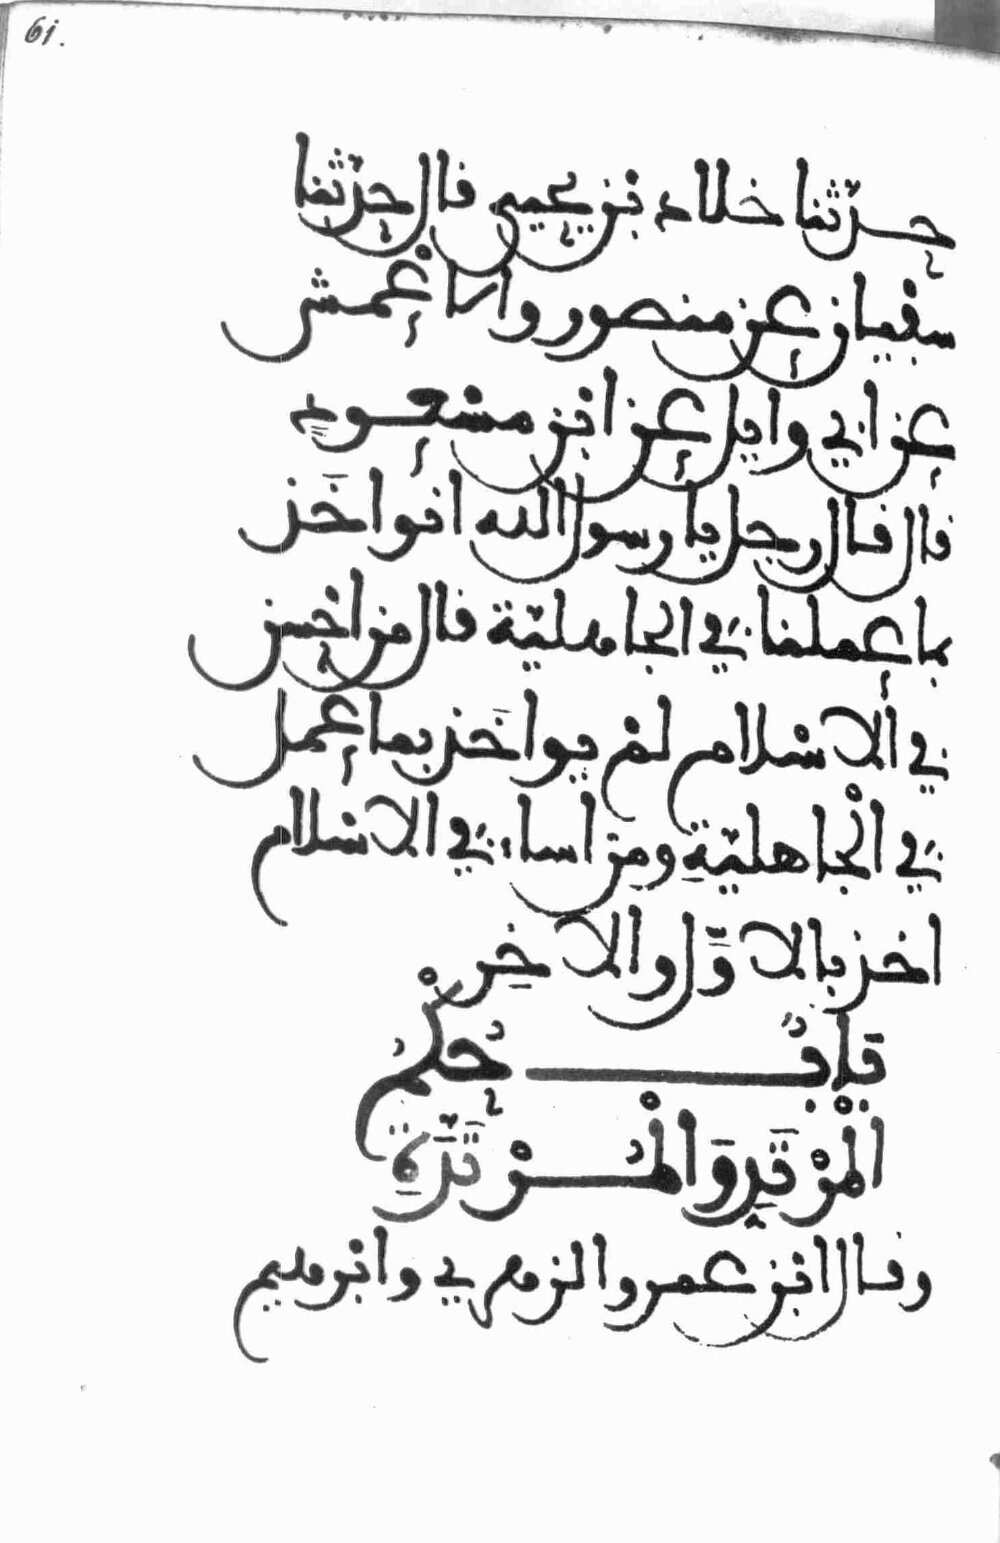 61.
حدّثنا خلاد بن يحيى قال حدّثنا
سفيان عن منصور والاعْمش
عن ابي وايل عن ابن مسْعود
قال قال رجل يا رسول الله انواخَذ
بما عملنا في الجاهليّة قال من احْسن
في الاسْلام لمْ يواخَذ بما عمل
في الْجاهليّةِ ومن اساء في الاسْلام
اخذ بالاوّل والاخِر
بابُ حُكْمُ
الْمرْتَدِّ وَالْمُرْتَدَّةِ
وقال ابن عمر والزهري وابرهيم